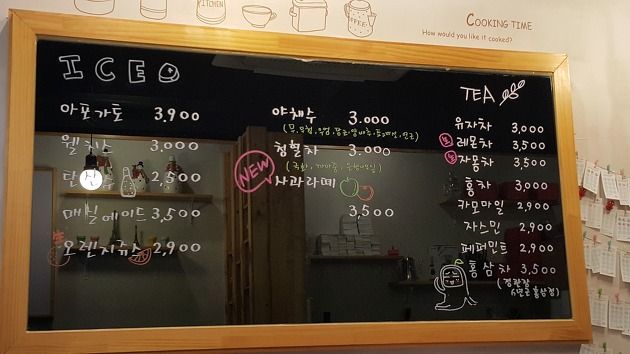 KITCHEN
COFFEE
COOKING TIME
How would you like it cooked?
ICED
아포가토 3,900
웰치스 3,000
탄산 2,500
매실에이드 3,500
오렌지쥬스 2,900
야채수 3.000
청혈차 3.000
NEW
사과라떼
3,500
TEA
유자차 3,000
레몬차 3,500
자몽차 3,500
홍차 3,000
카모마일 2,900
자스민 2,900
페퍼민트 2,900
홍삼차 3,500
(정관장
6년근 홍삼정)